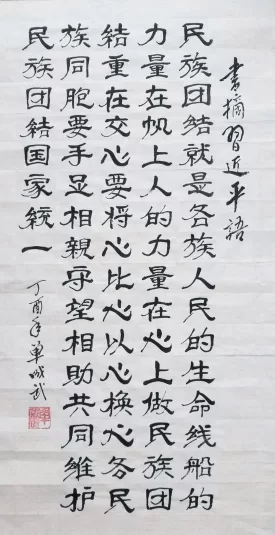 書摘習近平語
民族团结就是各族人民的生命线船的
力量在帆上人的力量在心上做民族团
结重在交心要将心比心以心换心各民
族同胞要手足相親守望相助共同维护
民族团结国家統一
丁酉年單城武